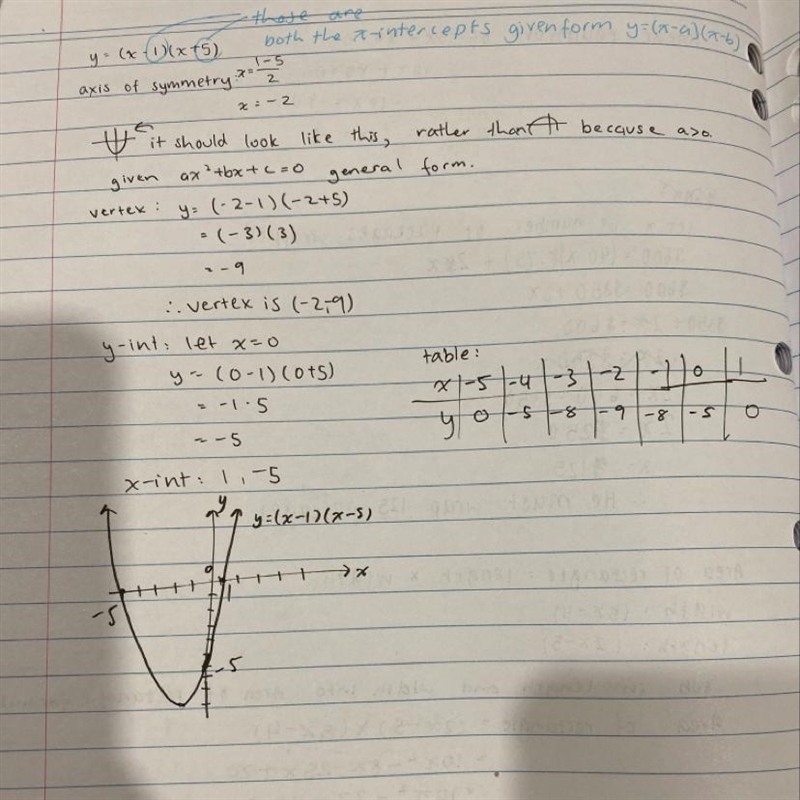 those are
both the x-intercepts given form y=(x-a)(x-b)
y=(x-1)(x+5)
axis of symmetry: x=1-5/2
x=-2
it should look like this, rather than because a>0.
given ax²+bx+c=0 general form.
vertex: y=(-2-1)(-2+5)
=(-3)(3)
=-9
∴ vertex is (-2,-9)
y-int: let x=0
y=(0-1)(0+5)
=-1·5
=-5
table:
x -5 -4 -3 -2 -1 0 1
y 0 -5 -8 -9 -8 -5 0
x-int: 1, -5
y
y=(x-1)(x-5)
0
x
-5
1
-5